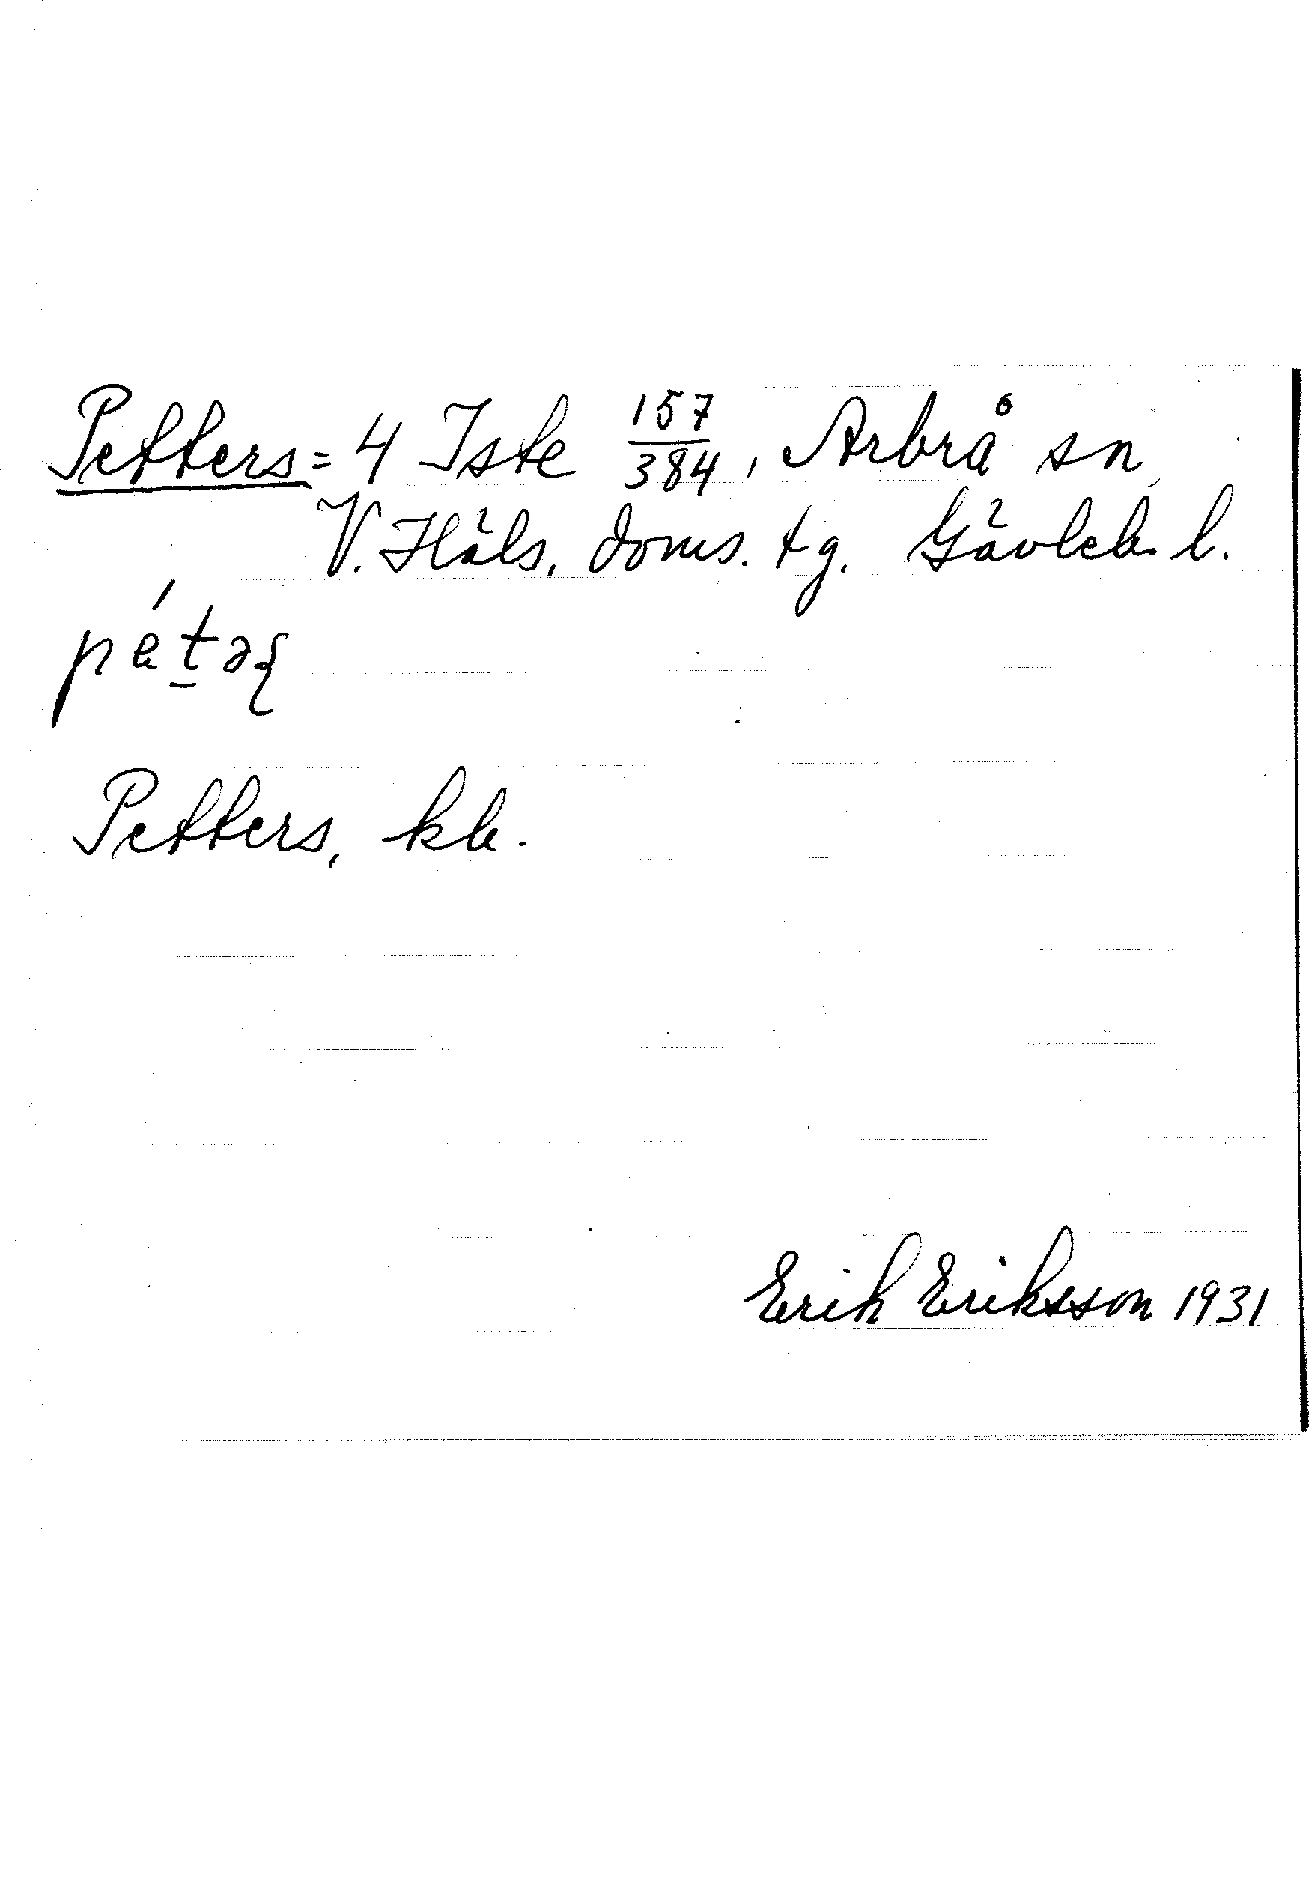 Petters = 4 Iste 157/384, Arbrå sn
V. Häls. doms. tg. Gävleb. l.
pétəʂ
Petters, kb.
Erik Eriksson 1931